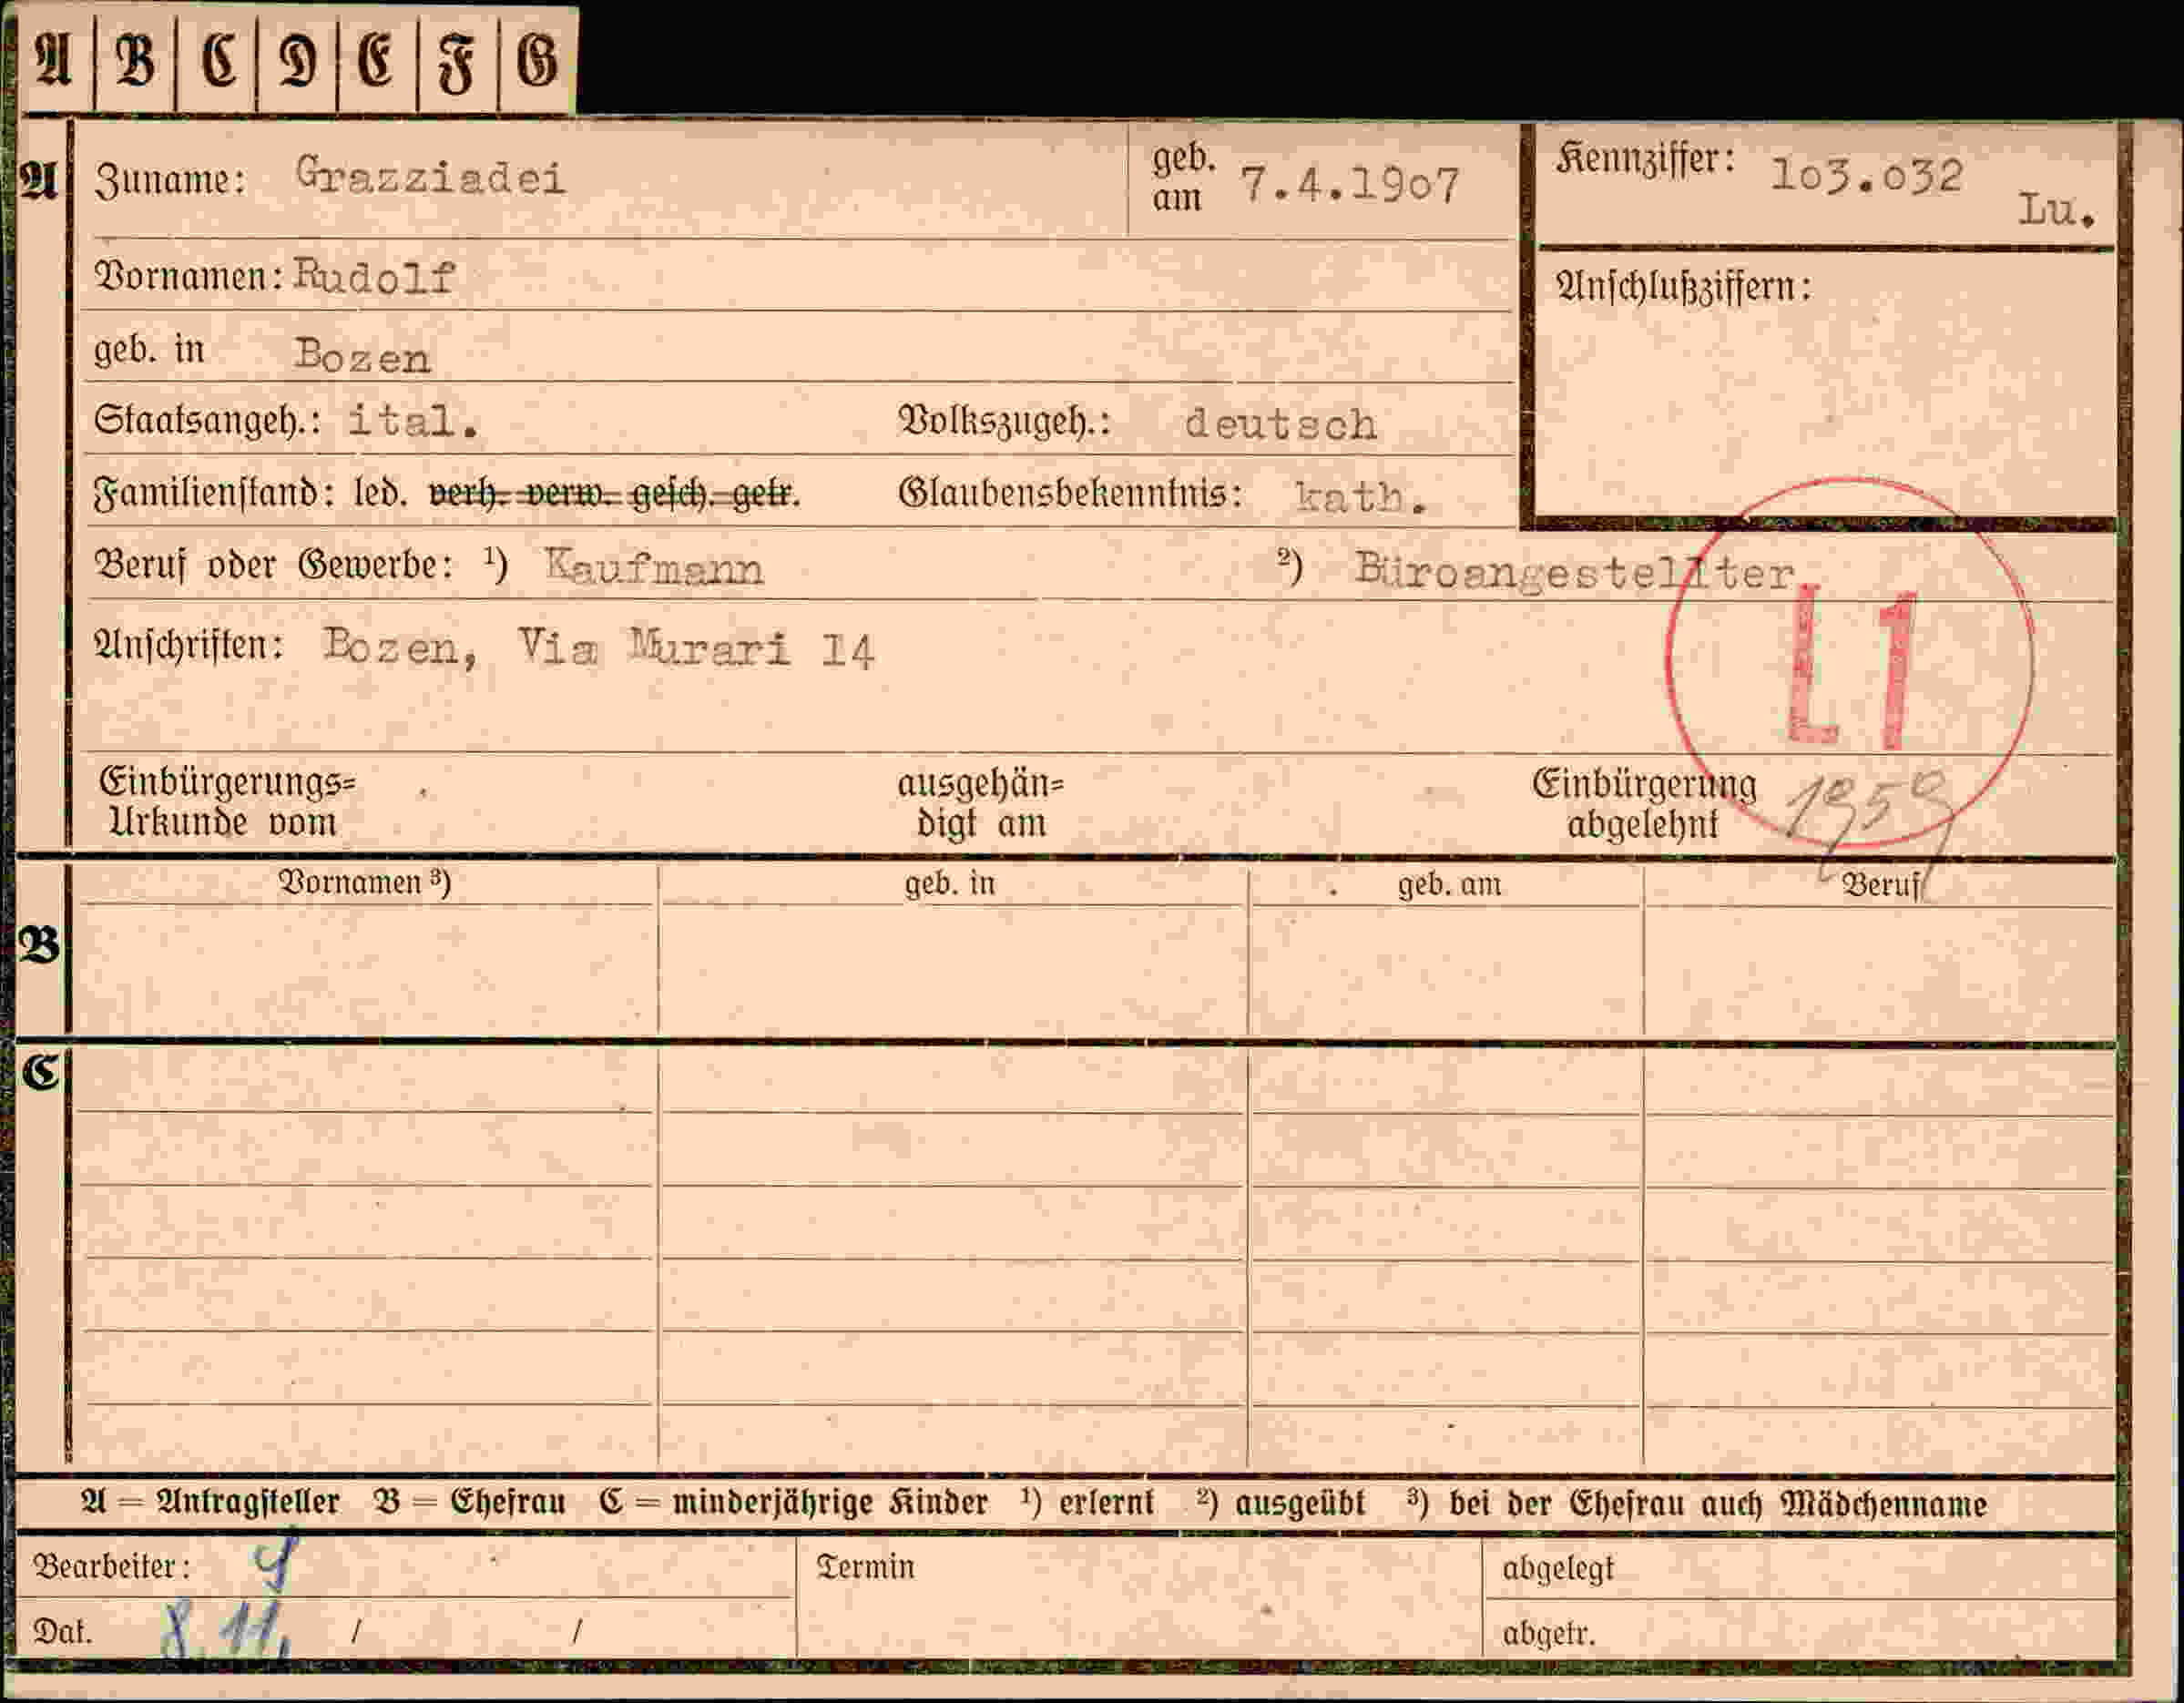 A B C D E F G
A Zuname: Grazziadei geb. am 7.4.1907 Kennziffer: 103.032 Lu.
Vornamen: Rudolf Anschlußziffern:
geb. in Bozen
Staatsangeh.: ital. Volkszugeh.: deutsch
Familienstand: led. verh. verw. gesch. getr. Glaubensbekenntnis: kath.
Beruf oder Gewerbe: ¹) Kaufmann ²) Büroangestellter
Anschriften: Bozen, Via Murari 14
L1
Einbürgerungs= ausgehän= Einbürgerung 1959
Urkunde vom digt am abgelehnt
B Vornamen ³) geb. in geb. am Beruf
C
A = Antragsteller B = Ehefrau C = minderjährige Kinder ¹) erlernt ²) ausgeübt ³) bei der Ehefrau auch Mädchenname
Bearbeiter: Termin abgelegt
Dat. 8.11. / / abgetr.